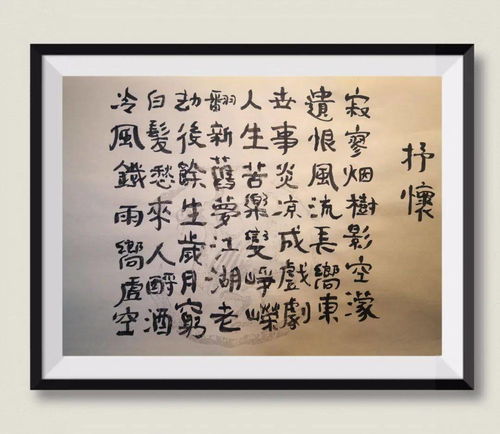 抒懷
寂寥烟樹影空濛
遺恨風流長嚮東
世事炎凉成戲劇
人生苦樂變崢嶸
翻新舊夢江湖老
劫後餘生歲月窮
白髮愁來人醉酒
冷風鐵雨嚮虛空